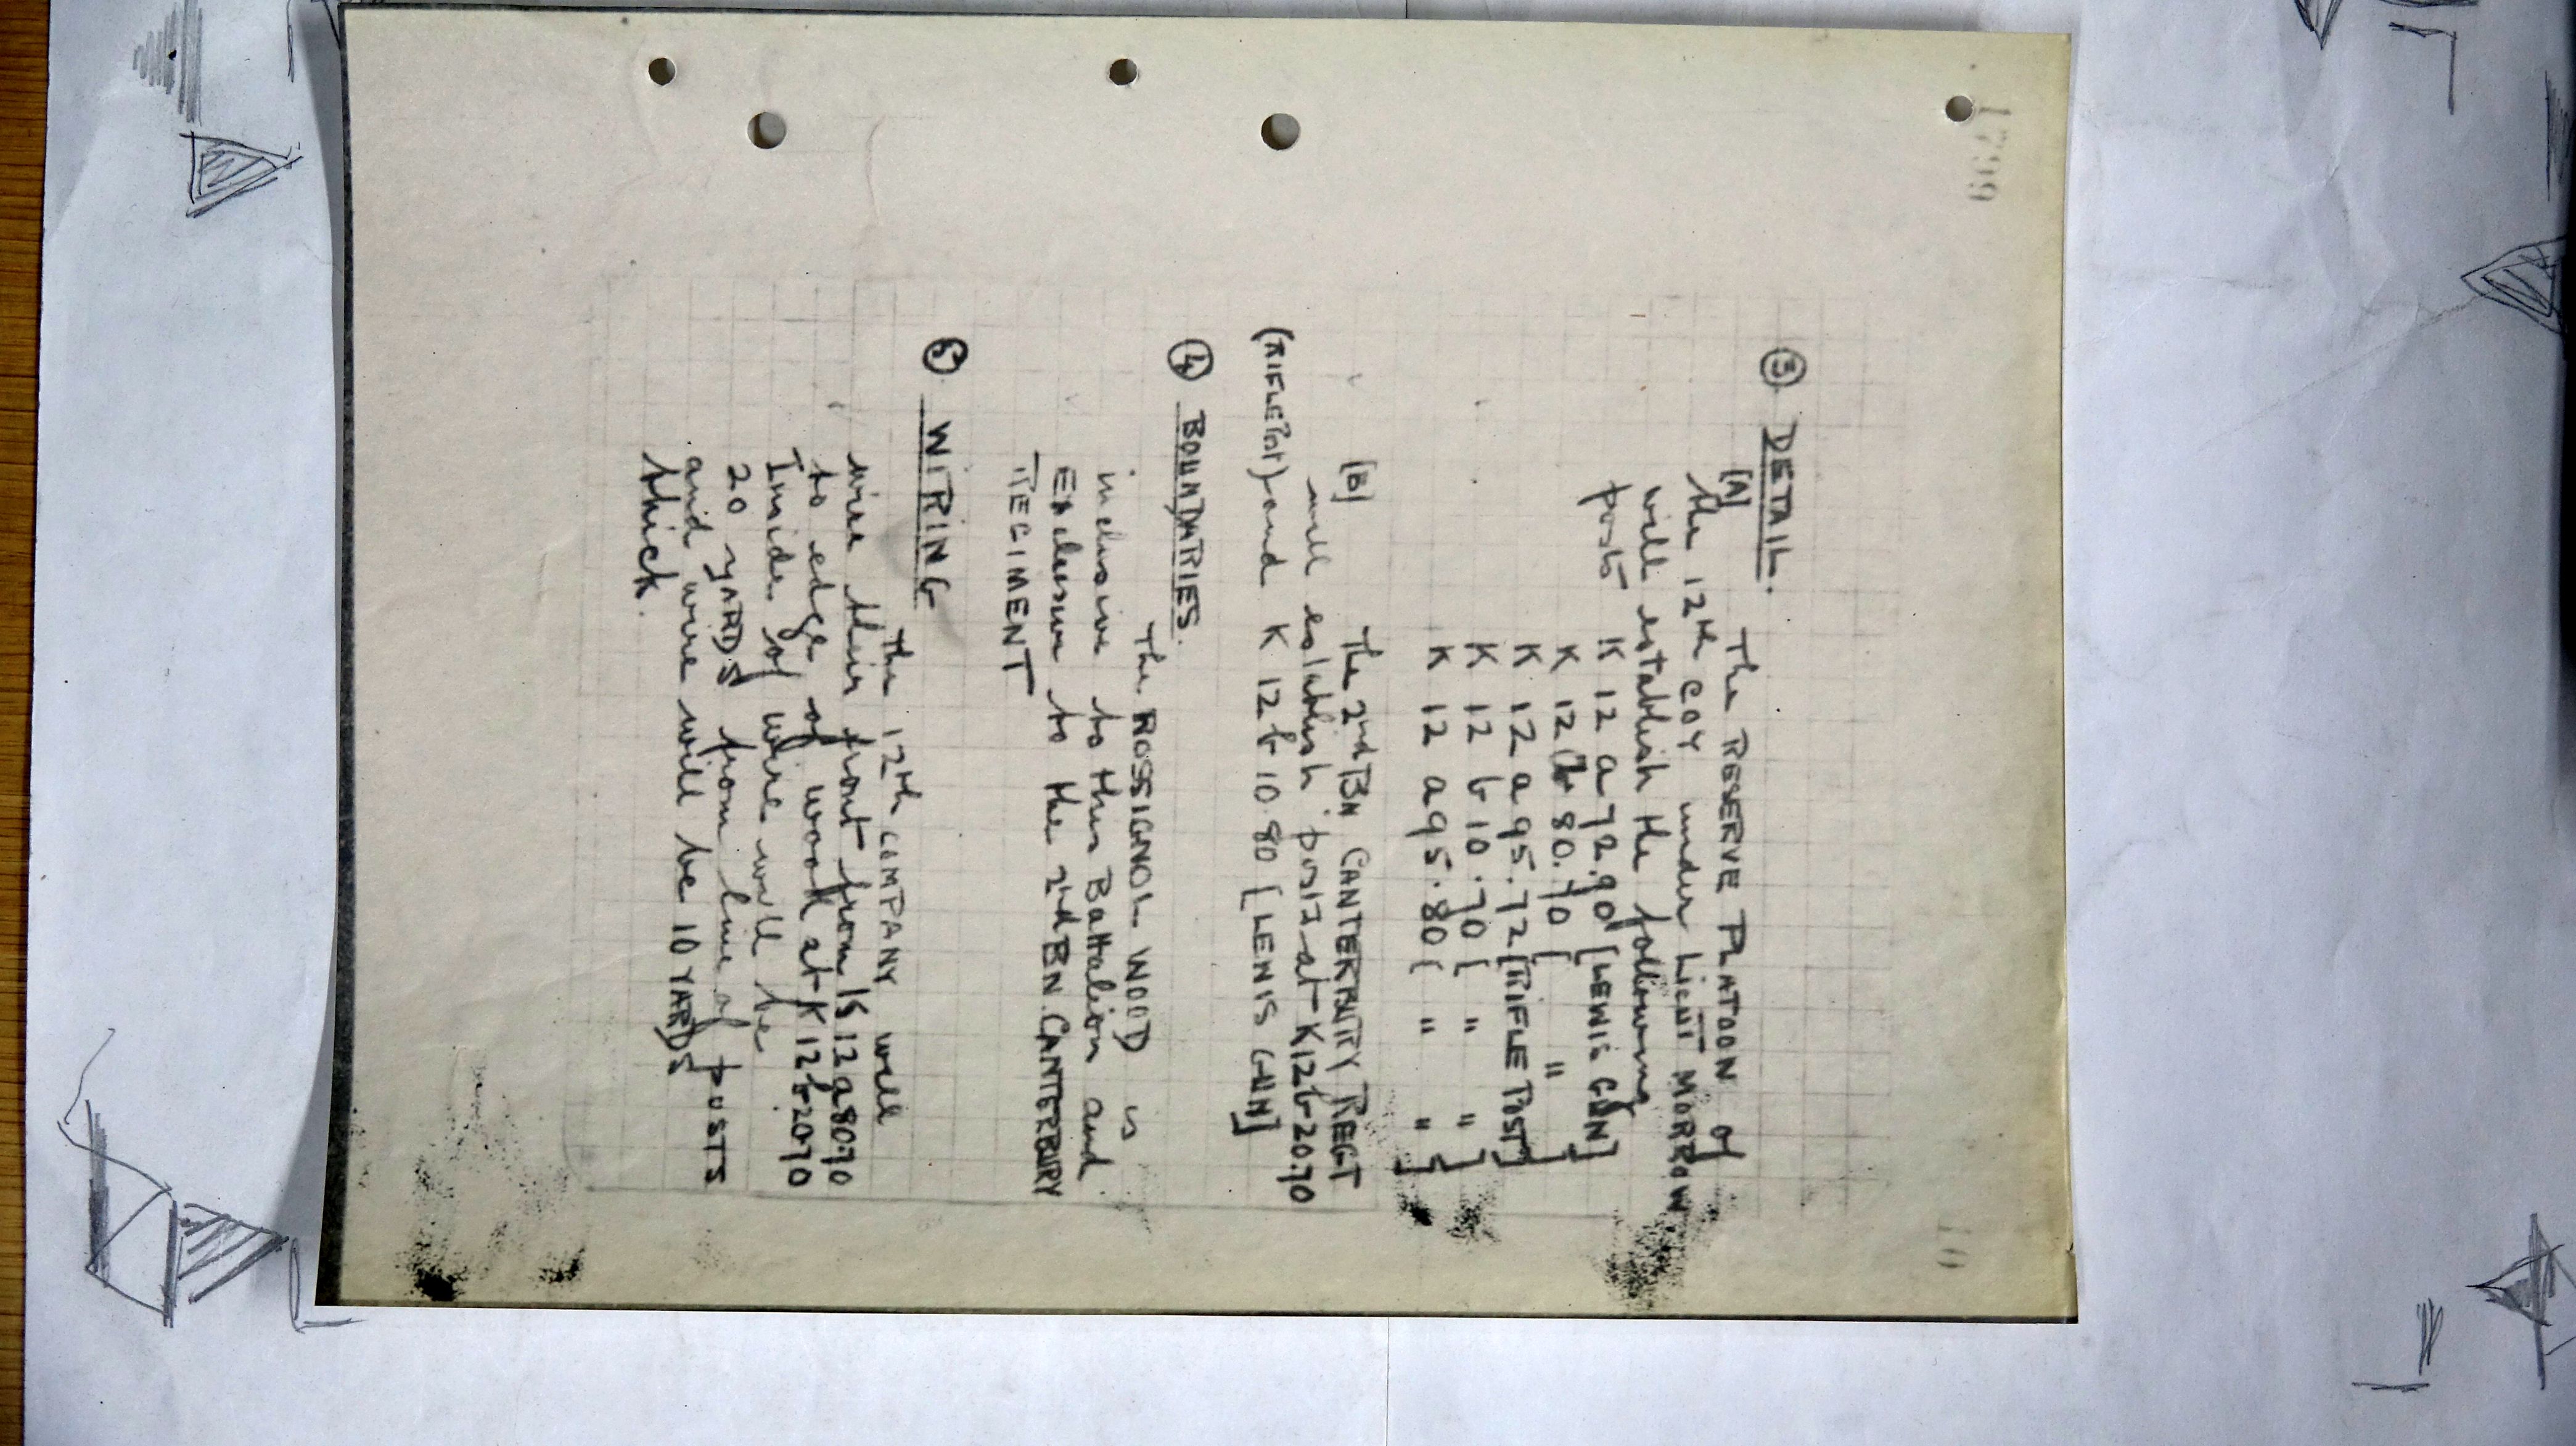 1799
10
③ DETAIL.
[A] The RESERVE PLATOON of
the 12th COY under Lieut MORROW
will establish the following
posts K 12 a 72.90 [LEWIS GUN]
K 12 b 80.70 [ " ]
K 12 a 95.72 [RIFLE POST]
K 12 b 10.70 [ " " ]
K 12 a 95.80 [ " " ]
[B] The 2nd BN CANTERBURY REGT
will establish posts at K12 b 20.70
(RIFLE Post) and K 12 b 10 80 [LEWIS GUN]
④ BOUNDARIES.
The ROSSIGNOL WOOD is
inclusive to this Battalion and
Exclusive to the 2nd BN. CANTERBURY
REGIMENT
⑤ WIRING
The 12th COMPANY will
wire their front from K 12 a 80.70
to edge of wood at K 12 b 20.70
Inside of wire will be
20 YARDS from line of POSTS
and wire will be 10 YARDS
thick.